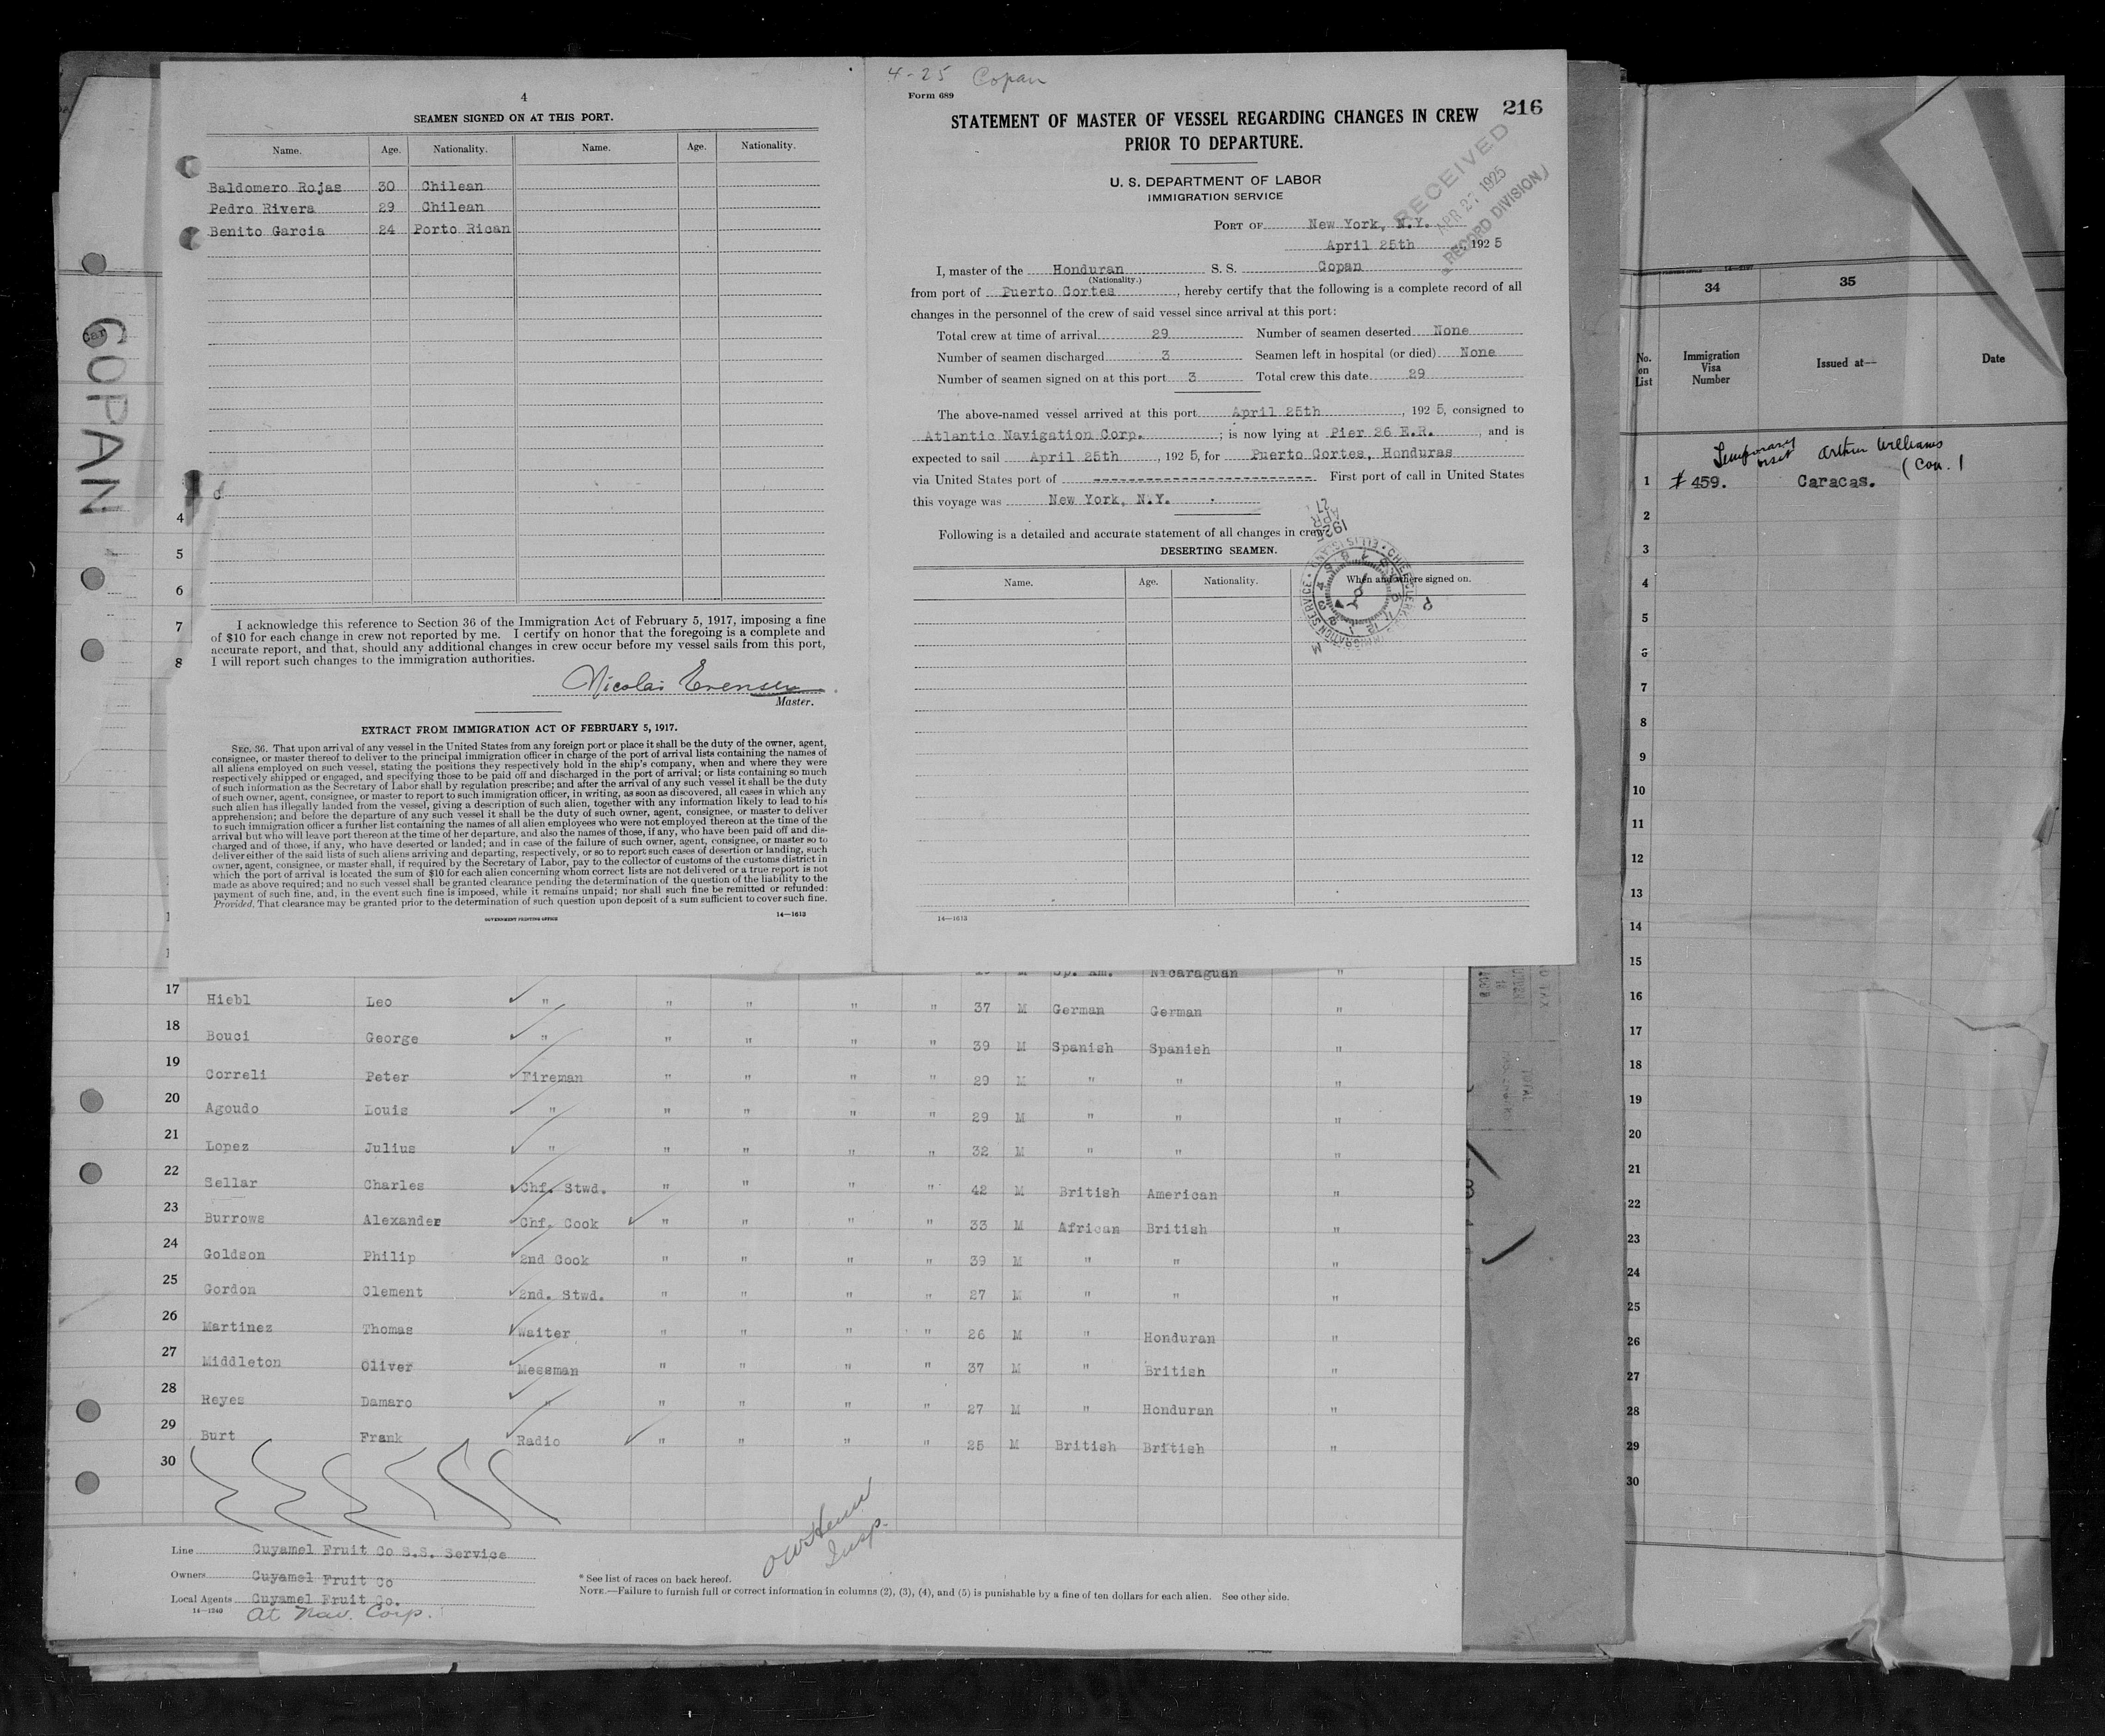 4
SEAMEN SIGNED ON AT THIS PORT.
Name. Age. Nationality. Name. Age. Nationality.
Baldomero Rojas 30 Chilean
Pedro Rivera 29 Chilean
Benito Garcia 24 Porto Rican
I acknowledge this reference to Section 36 of the Immigration Act of February 5, 1917, imposing a fine
of $10 for each change in crew not reported by me. I certify on honor that the foregoing is a complete and
accurate report, and that, should any additional changes in crew occur before my vessel sails from this port,
I will report such changes to the immigration authorities.
Nicolai Evensen
Master.
EXTRACT FROM IMMIGRATION ACT OF FEBRUARY 5, 1917.
SEC. 36. That upon arrival of any vessel in the United States from any foreign port or place it shall be the duty of the owner, agent,
consignee, or master thereof to deliver to the principal immigration officer in charge of the port of arrival lists containing the names of
all aliens employed on such vessel, stating the positions they respectively hold in the ship's company, when and where they were
respectively shipped or engaged, and specifying those to be paid off and discharged in the port of arrival; or lists containing so much
of such information as the Secretary of Labor shall by regulation prescribe; and after the arrival of any such vessel it shall be the duty
of such owner, agent, consignee, or master to report to such immigration officer, in writing, as soon as discovered, all cases in which any
such alien has illegally landed from the vessel, giving a description of such alien, together with any information likely to lead to his
apprehension; and before the departure of any such vessel it shall be the duty of such owner, agent, consignee, or master to deliver
to such immigration officer a further list containing the names of all alien employees who were not employed thereon at the time of the
arrival but who will leave port thereon at the time of her departure, and also the names of those, if any, who have been paid off and dis-
charged and of those, if any, who have deserted or landed; and in case of the failure of such owner, agent, consignee, or master so to
deliver either of the said lists of such aliens arriving and departing, respectively, or so to report such cases of desertion or landing, such
owner, agent, consignee, or master shall, if required by the Secretary of Labor, pay to the collector of customs of the customs district in
which the port of arrival is located the sum of $10 for each alien concerning whom correct lists are not delivered or a true report is not
made as above required; and no such vessel shall be granted clearance pending the determination of the question of the liability to the
payment of such fine, and, in the event such fine is imposed, while it remains unpaid; nor shall such fine be remitted or refunded:
Provided, That clearance may be granted prior to the determination of such question upon deposit of a sum sufficient to cover such fine.
GOVERNMENT PRINTING OFFICE 14—1613
4-25 Copan
Form 689
216
STATEMENT OF MASTER OF VESSEL REGARDING CHANGES IN CREW
PRIOR TO DEPARTURE.
U. S. DEPARTMENT OF LABOR
IMMIGRATION SERVICE
RECEIVED
APR 27 1925
RECORD DIVISION
PORT OF New York, N.Y.
April 25th, 1925
I, master of the Honduran S. S. Copan
(Nationality.)
from port of Puerto Cortes, hereby certify that the following is a complete record of all
changes in the personnel of the crew of said vessel since arrival at this port:
Total crew at time of arrival 29 Number of seamen deserted None
Number of seamen discharged 3 Seamen left in hospital (or died) None
Number of seamen signed on at this port 3 Total crew this date 29
The above-named vessel arrived at this port April 25th, 1925, consigned to
Atlantic Navigation Corp.; is now lying at Pier 26 E.R., and is
expected to sail April 25th, 1925, for Puerto Cortes, Honduras
via United States port of ------------------------- First port of call in United States
this voyage was New York, N.Y.
Following is a detailed and accurate statement of all changes in crew:
1925 APR 27
DESERTING SEAMEN.
Name. Age. Nationality. When and where signed on.
14—1613
COPAN
4
5
6
7
8
Sp. Am. Nicaraguan "
17 Hiebl Leo " " " " " 37 M German German "
18 Bouci George " " " " " 39 M Spanish Spanish "
19 Correli Peter Fireman " " " " 29 M " " "
20 Agoudo Louis " " " " " 29 M " " "
21 Lopez Julius " " " " " 32 M " " "
22 Sellar Charles Chf. Stwd. " " " " 42 M British American "
23 Burrows Alexander Chf. Cook " " " " 33 M African British "
24 Goldson Philip 2nd Cook " " " " 39 M " " "
25 Gordon Clement 2nd. Stwd. " " " " 27 M " " "
26 Martinez Thomas Waiter " " " " 26 M " Honduran "
27 Middleton Oliver Messman " " " " 37 M " British "
28 Reyes Damaro " " " " " 27 M " Honduran "
29 Burt Frank Radio " " " " 25 M British British "
30
Insp.
Line Cuyamel Fruit Co S.S. Service
Owners Cuyamel Fruit Co
Local Agents Cuyamel Fruit Co.
14—1240
At Nav. Corp.
* See list of races on back hereof.
NOTE.—Failure to furnish full or correct information in columns (2), (3), (4), and (5) is punishable by a fine of ten dollars for each alien. See other side.
34 35
No. on List Immigration Visa Number Issued at— Date
Temporary visit Arthur Williams
(Con.)
1 # 459. Caracas.
2
3
4
5
6
7
8
9
10
11
12
13
14
15
16
17
18
19
20
21
22
23
24
25
26
27
28
29
30